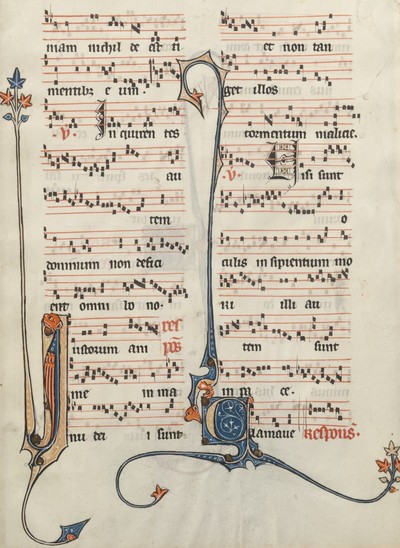 niam nichil de est ti
mentibz e um.
V. Inquiren tes
au
tem
dominum non defici
ent omni bo no.
Iustorum ani res
pōs
me in ma
nu dei i sunt
et non tan
get illos
tormentum malicie.
V. Visi sunt
o
culis insipientium mo
ri illi au
tem sunt
in pa ce.
Clamaue Respons.